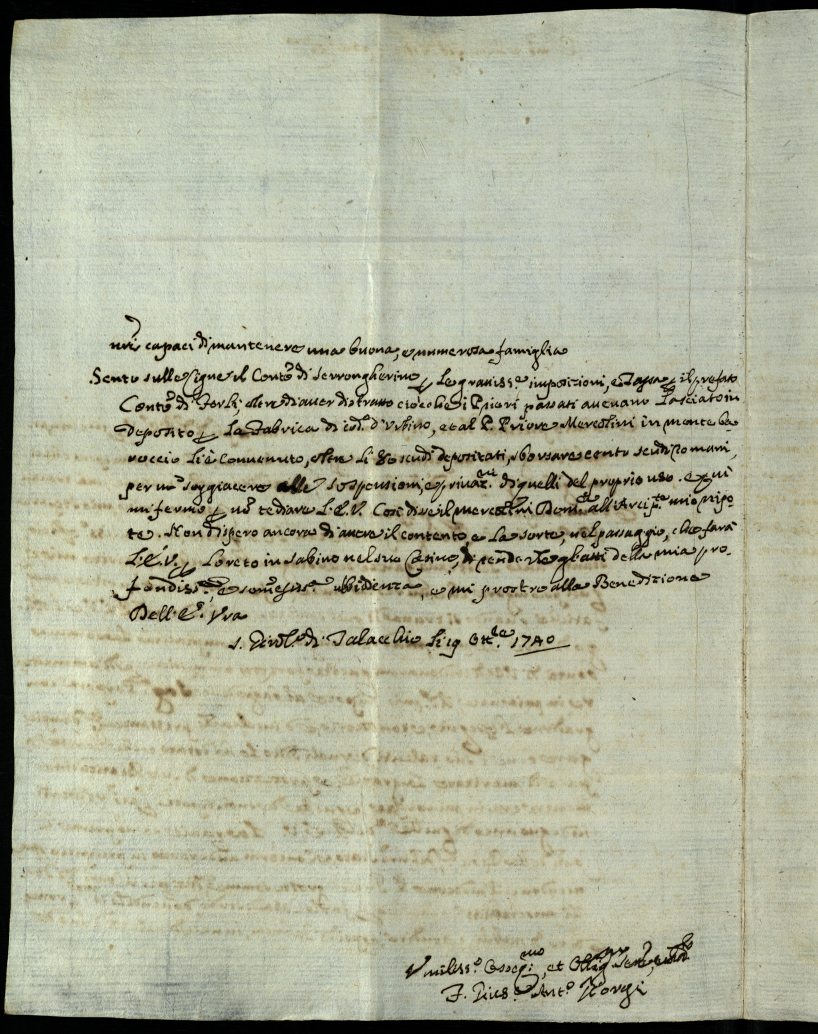 nri capaci di mantenere una buona, e numerosa famiglia
Sento sulle Signe il Conto di Serrongherino p le graviss.e imposizioni, e Tasse, e il prefato
Conto di Forlì oltre di aver distratto ciocche i Priori passati avevano Lasciato in
deposito p La Fabrica di d'Urbino, et al P. Priore Mercolini in monte Ba
roccio li è Convenuto, oltre li 80 scudi depositati, sborsare cento scudi Romani,
per nō soggiacere alle sospensioni, e privaz.ni di quelli del proprio uso. e qui
mi fermo p nō tediare L'E.V. Così dire il all' Arcip.te mio nipo-
te. Non dispero ancora di avere il contento e La sorte, nel passaggio, che farà
L'E.V. p Loreto in Sabino nel suo Casino, di renderle gl'atti della mia pro-
fondiss.a e somess.a ubbidienza, e mi prostro alla Benedizione
Dell' E. Vra
S. Girol.o di Talacchio li 19 Ott.bre 1740
Umiliss.o Osseq.mo, et Obblig.mo Serv.
F. Ant.o Giorgi